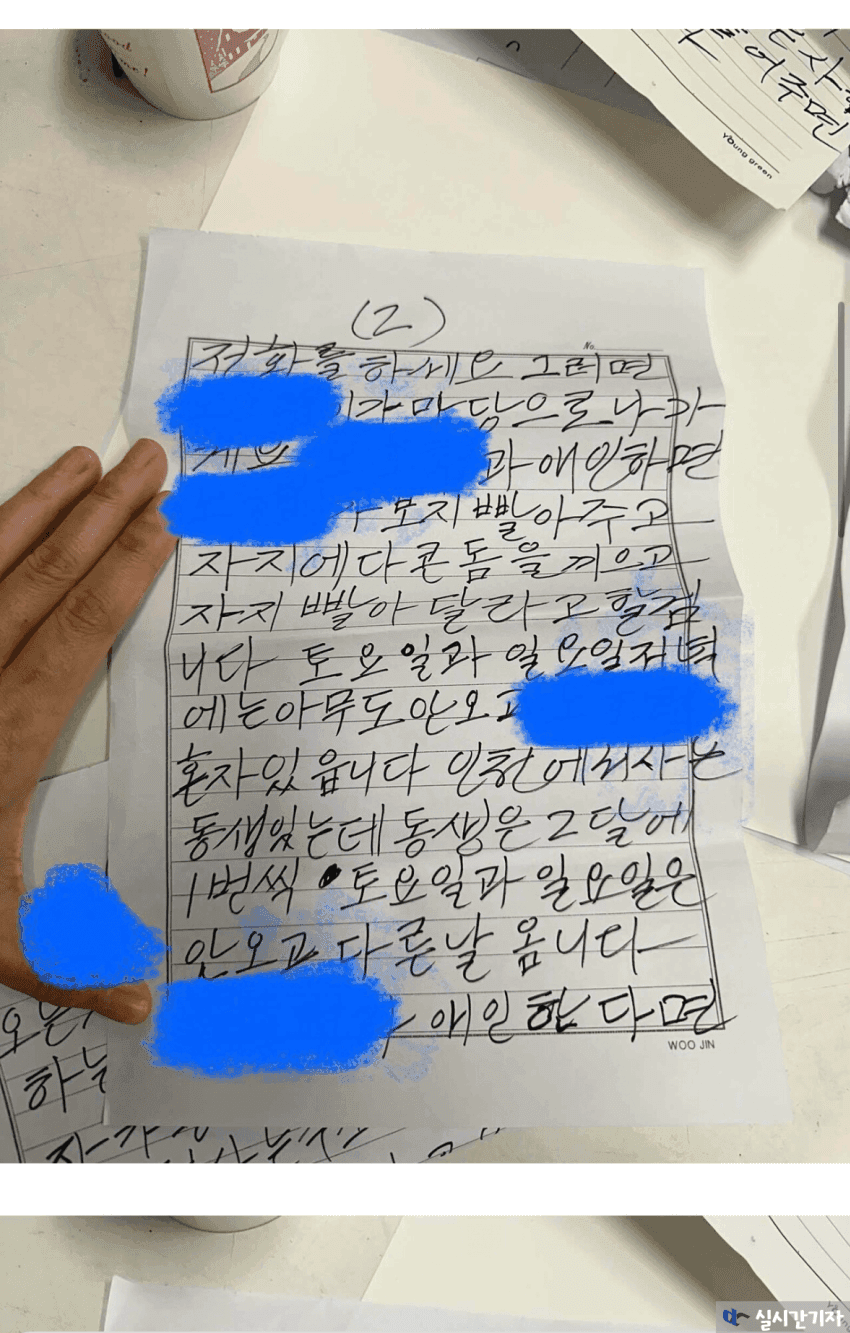 어주면
young green
(2)
No.
저화를 하세요 그러면
가 마당으로 나가
과 애인하면
보지 빨아주고
자지에다 콘돔을 끼으고
자지 빨아 달라고 할겁
니다 토요일과 일요일저녁
에는 아무도 안오고
혼자 있읍니다 인천에서 사는
동생있는데 동생은 2달에
1번씩 토요일과 일요일은
안오고 다른날 옵니다
애인 한다면
WOO JIN
하는
실시간기자